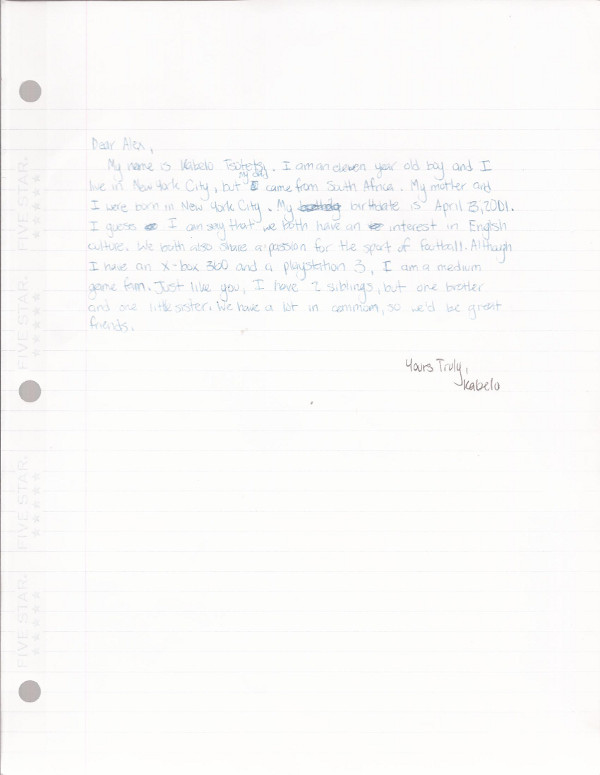 Dear Alex,
My name is Kabelo Tsotetsi. I am an eleven year old boy and I
live in New York City, but my dad came from South Africa. My mother and
I were born in New York City. My birthdate is April 3, 2001.
I guess I am say that we both have an interest in English
culture. We both also share a passion for the sport of football. Although
I have an X-box 360 and a playstation 3, I am a medium
game fan. Just like you, I have 2 siblings, but one brother
and one little sister. We have a lot in common, so we'd be great
friends.
Yours Truly,
Kabelo
FIVE STAR.
FIVE STAR.
FIVE STAR.
FIVE STAR.